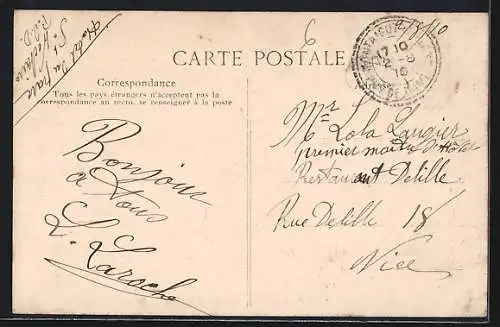 6
2/8/10
CARTE POSTALE
17 10
2 - 8
10
Correspondance
Tous les pays étrangers n'acceptent pas la
correspondance au recto, se renseigner à la poste
Bonjour
à Vous
L. Laroche
Mr Lola Laugier
premier maitre d'Hôtel
Restaurant Delille
Rue Delille 18
Nice